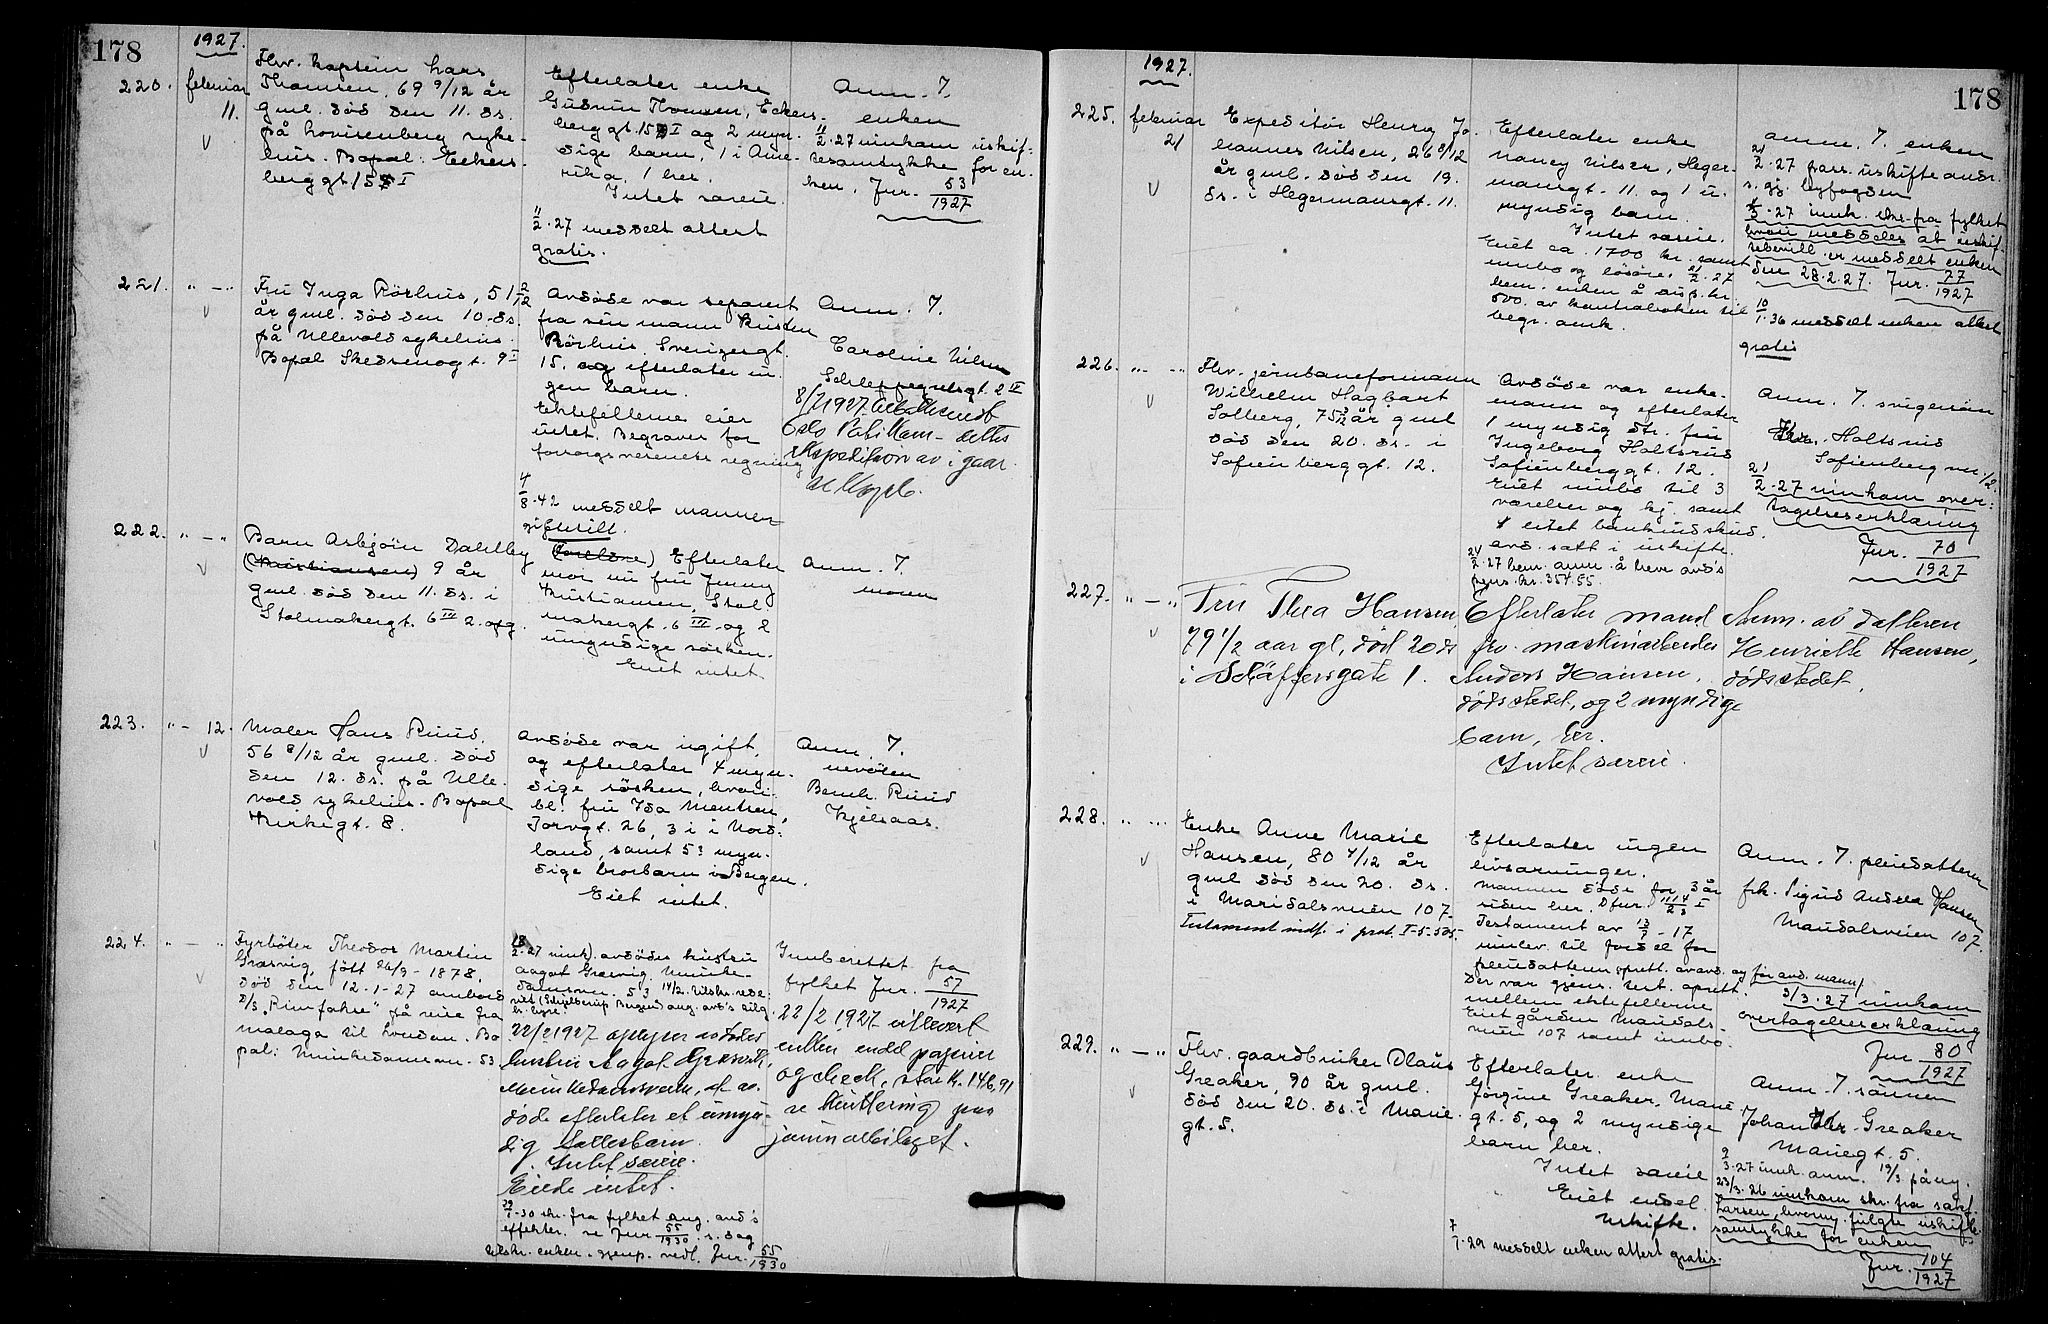 178
1927.
220. februar 11.
Fhv. kaptein Lars
Thomsen, 69 9/12 år
gml. död den 11. ds.
på Lovisenberg syke-
hus. Bopæl: Eckers-
berggt 15 I
Efterlater enke
Gudrun Thomsen, Eckers-
berggt. 15 I og 2 myn-
dige barn, 1 i Ame-
rika, 1 her.
Intet særeie.
11/2.27 meddelt attest
gratis.
Anm. 7.
enken
11/2.27 innkom uskif-
tesamtykke for en-
ken. Jur. 53/1927
221. " — "
Fru Inga Rörhus, 51 2/12
år gml. död den 10. ds.
på Ullevold sykehus.
Bopæl Skedsmogt. 9 I
Avdöde var separert
fra sin mann Kristen
Rörhus, Sverigesgt.
15. og efterlater in-
gen barn.
Ektefellerne eier
intet. Begraves for
forsorgsvesenets regning
4/8.42 meddelt mannen
gifteatt.
Anm. 7.
Caroline Nilsen
Schleppegrelsgt. 2 II
8/7 1927
ekspedition av i gaar.
222. " — "
Barn Asbjörn Dahlby
(Kristiansen) 9 år
gml. död den 11. ds. i
Stolmakergt. 6 III 2. opg.
(Foreldre) Efterlater
mor nu fru Jenny
Kristiansen, Stol
makergt. 6 III og 2
umyndige söskn.
Eiet intet
Anm. 7.
moren
223. " — 12.
Maler Hans Ruud,
56 8/12 år gml. död
den 12. ds. på Ulle-
vold sykehus. Bopæl
Kirkegt. 8.
Avdöde var ugift,
og efterlater 4 myn-
dige söskn, hvori-
bl. fru Ida Mentsen,
Torvgt. 26, 3 i i Nord-
land, samt 5 myn-
dige brorbarn i Bergen.
Eiet intet.
Anm. 7.
nevöen
Bernh. Ruud
Kjelsaas.
224. " — "
Fyrböter Theodor Martin
Græsvig, födt 26/9-1878,
död den 12.1-27 ombord
D/S "Rimfakse" på reise fra
Malaga til London. Bo
pæl: Munkedamsvn. 53
18/2.27 innk. avdödes hustru
Aagot Græsvig, Munke-
damsvn. 53 14/2.
22/2 1927 opgiver avdödes
hustru Aagot
Munkedamsveien, at av-
döde efterlater et umyn-
dig fællesbarn.
Intet særeie.
Eiede intet.
29/1-30 skr. fra fylket ang. avd's
effekter. se Jur 55/1930
tilskr. enken. gjenp. vedl. Jur. 55/1930
Innberettet fra
fylket Jur. 57/1927
22/2 1927 utlevert
enken endel papirer
og check, stor kr. 146,91
se kvittering paa
journalbilaget.
178
1927.
225. februar 21
Expeditör Henry Jo-
hannes Nilsen, 26 8/12
år gml. död den 19.
ds. i Hegermansgt. 11.
Efterlater enke
Nancy Nilsen, Heger-
mansgt. 11. og 1 u-
myndig barn.
Intet særeie.
Eiet ca. 1700 kr. samt
innbo og lösöre. 21/2.27
bem. enken å disp. kr.
500. av bankboken til
begr. omk.
anm. 7. enken
21/2.27 pass. uskifte andr.
s. gj. byfogden
4/3.27 innk. skr. fra fylket
hvori meddeles at uskif-
tebevill. er meddelt enken
den 28.2.27. Jur. 77/1927
10/1.36 meddelt enken attest
gratis
226. " — "
Fhv. jernbaneformann
Wilhelm Hagbart
Solberg, 75 3/12 år gml
död den 20. ds. i
Sofienberggt. 12.
Avdöde var enke-
mann og efterlater
1 myndig dtr. fru
Ingeborg Holtsrud
Sofienberggt. 12.
Eiet innbo til 3
værelser og kj. samt
et eitet bankinnskud.
avd. satt i uskifte.
24/2.27 bem. anm. å heve avd's
pens. kr. 354.55.
Anm. 7. svigersön
Chr. Holtsrud
Sofienberggt. 12.
21/2.27 innkom over-
tagelseserklæring
Jur. 70/1927
227. " — "
Fru Thea Hansen
79 1/2 aar gl, död 20 ds
i Schäffersgate 1.
Efterlater mand
fhv. maskinarbeider
Anders Hansen,
dödsstedet, og 2 myndige
barn, her.
Intet særeie.
Anm. av datteren
Henriette Hansen,
dödsstedet.
228. " ...
Enke Anne Marie
Hansen, 80 4/12 år
gml död den 20. ds.
i Maridalsveien 107.
Testament indf. i prot. I-5-505.
Efterlater ingen
livsarvinger.
Mannen döde for 3 år
siden her.
Testament av 13/7-17
innlev. til fordel for
pleiedatteren oprett. av avd. og for avd. mann/
Der var gjens. test. oprett.
mellem ektefellerne
Eiet gården Maridals-
veien 107 samt innbo.
Anm. 7. pleiedatteren
frk. Sigrid Andrea Hansen
Maridalsveien 107.
3/3.27 innkom
overtagelseserklæring
Jur 80/1927
229. " — "
Fhv. gaardbruker Olaus
Greaker, 90 år gml.
död den 20. ds. i Marie-
gt. 5.
Efterlater enke
Jörgine Greaker, Marie
gt. 5, og 2 myndige
barn her.
Intet særeie
Eiet endel
Uskifte.
7/1.29 meddelt enken attest gratis.
Anm. 7. sönnen
Johan Chr. Greaker
Mariegt. 5.
9/3.27 innk. anm. 19/3 på ny.
23/3.26 innkom skr. fra sakf.
Larsen, hvorny. fulgte uskifte-
samtykke for enken
Jur. 104/1927